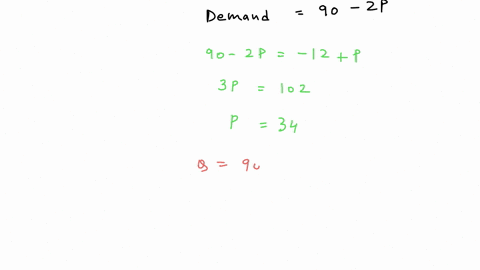 Demand = 90 - 2P
90 - 2P = -12 + P
3P = 102
P = 34
Q = 90